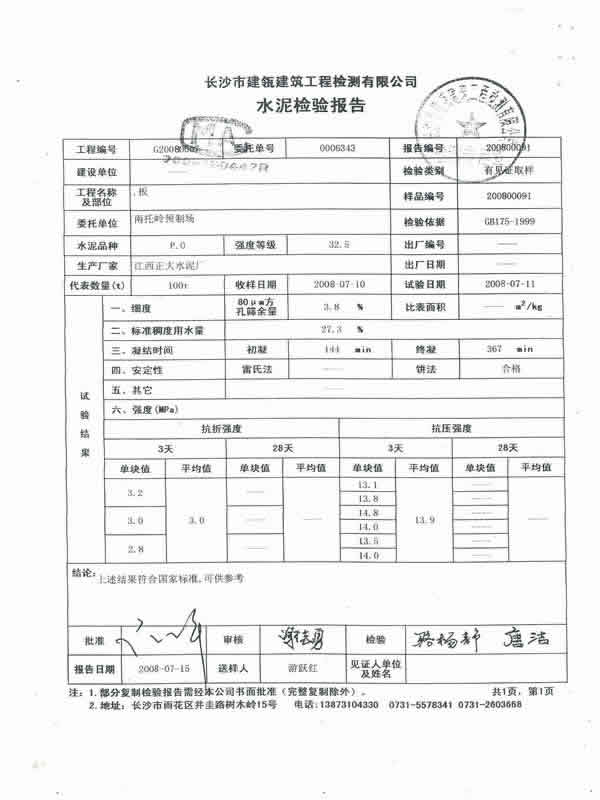 长沙市建瓴建筑工程检测有限公司
水泥检验报告
工程编号 G20080507 委托单号 0006343 报告编号 200800091
建设单位 —— 检验类别 有见证取样
工程名称及部位 .板 样品编号 200800091
委托单位 南托岭预制场 检验依据 GB175-1999
水泥品种 P.O 强度等级 32.5 出厂编号 ——
生产厂家 江西正大水泥厂 出厂日期 ——
代表数量(t) 100t 收样日期 2008-07-10 试验日期 2008-07-11
试验结果
一、细度 80μm方孔筛余量 3.8 % 比表面积 —— m²/kg
二、标准稠度用水量 27.3 %
三、凝结时间 初凝 144 min 终凝 367 min
四、安定性 雷氏法 —— 饼法 合格
五、其它 ——
六、强度(MPa)
抗折强度 抗压强度
3天 28天 3天 28天
单块值 平均值 单块值 平均值 单块值 平均值 单块值 平均值
3.2 —— 13.1 ——
13.8 ——
3.0 3.0 —— —— 14.8 13.9 —— ——
14.0 ——
2.8 —— 13.5 ——
14.0 ——
结论: 上述结果符合国家标准,可供参考
批准 审核 检验 骆杨静 唐洁
报告日期 2008-07-15 送样人 游跃红 见证人单位及姓名
注: 1.部分复制检验报告需经本公司书面批准(完整复制除外)。 共1页, 第1页
2.地址: 长沙市雨花区井圭路树木岭15号 电话:13873104330 0731-5578341 0731-2603668